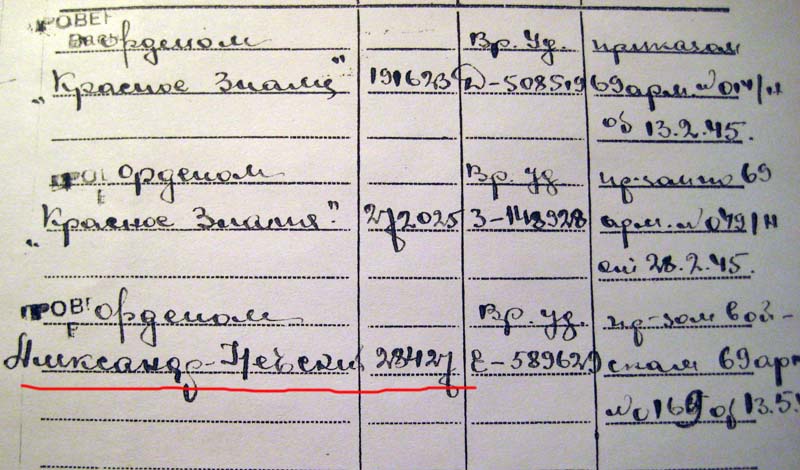 ПРОВЕР
орденом Вр. Уд. приказом
"Красное Знамя" 191623 Д-508519 69 арм. №014/н
от 13.2.45.
орденом Вр. уд пр-зом по 69
"Красное Знамя". 272025 З-148928 арм. №049/н
от 28.2.45.
ПРОВЕ орденом Вр. уд. пр-зом вой-
Александр-Невский 28427 Е-589629 скам 69 арм
№0169 от 13.5.